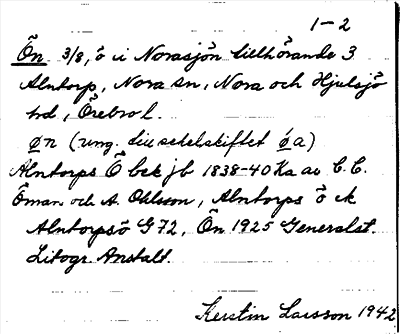 1-2
Ön 3/8, ö i Norasjön tillhörande 3
Alntorp, Nora sn, Nora och Hjulsjö
hd, Örebro l.
øn (ung. till sekelskiftet ǿa)
Alntorps Ö bek jb 1838-40 Ka av C.C.
Öman och A. Ohlsson, Alntorps ö ek
Alntorpsö G72, Ön 1925 Generalst.
Litogr. Anstalt.
Kerstin Larsson 1942